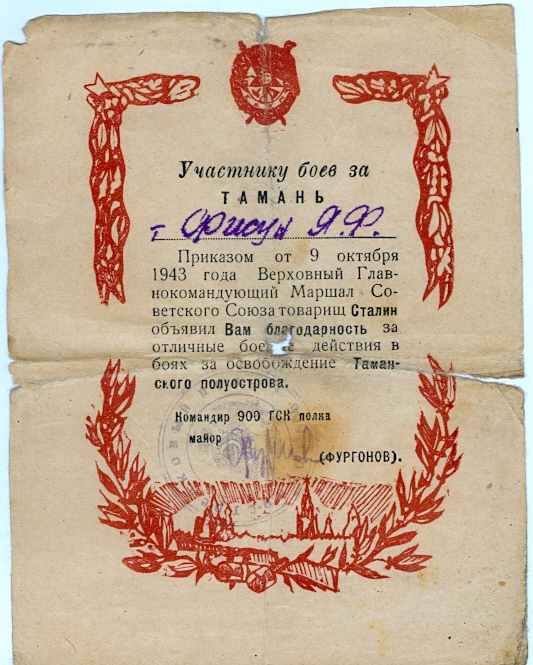 Участнику боев за
ТАМАНЬ
т Фисун Я.Ф.
Приказом от 9 октября
1943 года Верховный Глав-
нокомандующий Маршал Со-
ветского Союза товарищ Сталин
объявил Вам благодарность за
отличные действия в
боях за освобождение Таман-
ского полуострова.
Командир 900 ГСК полка
майор
(ФУРГОНОВ).